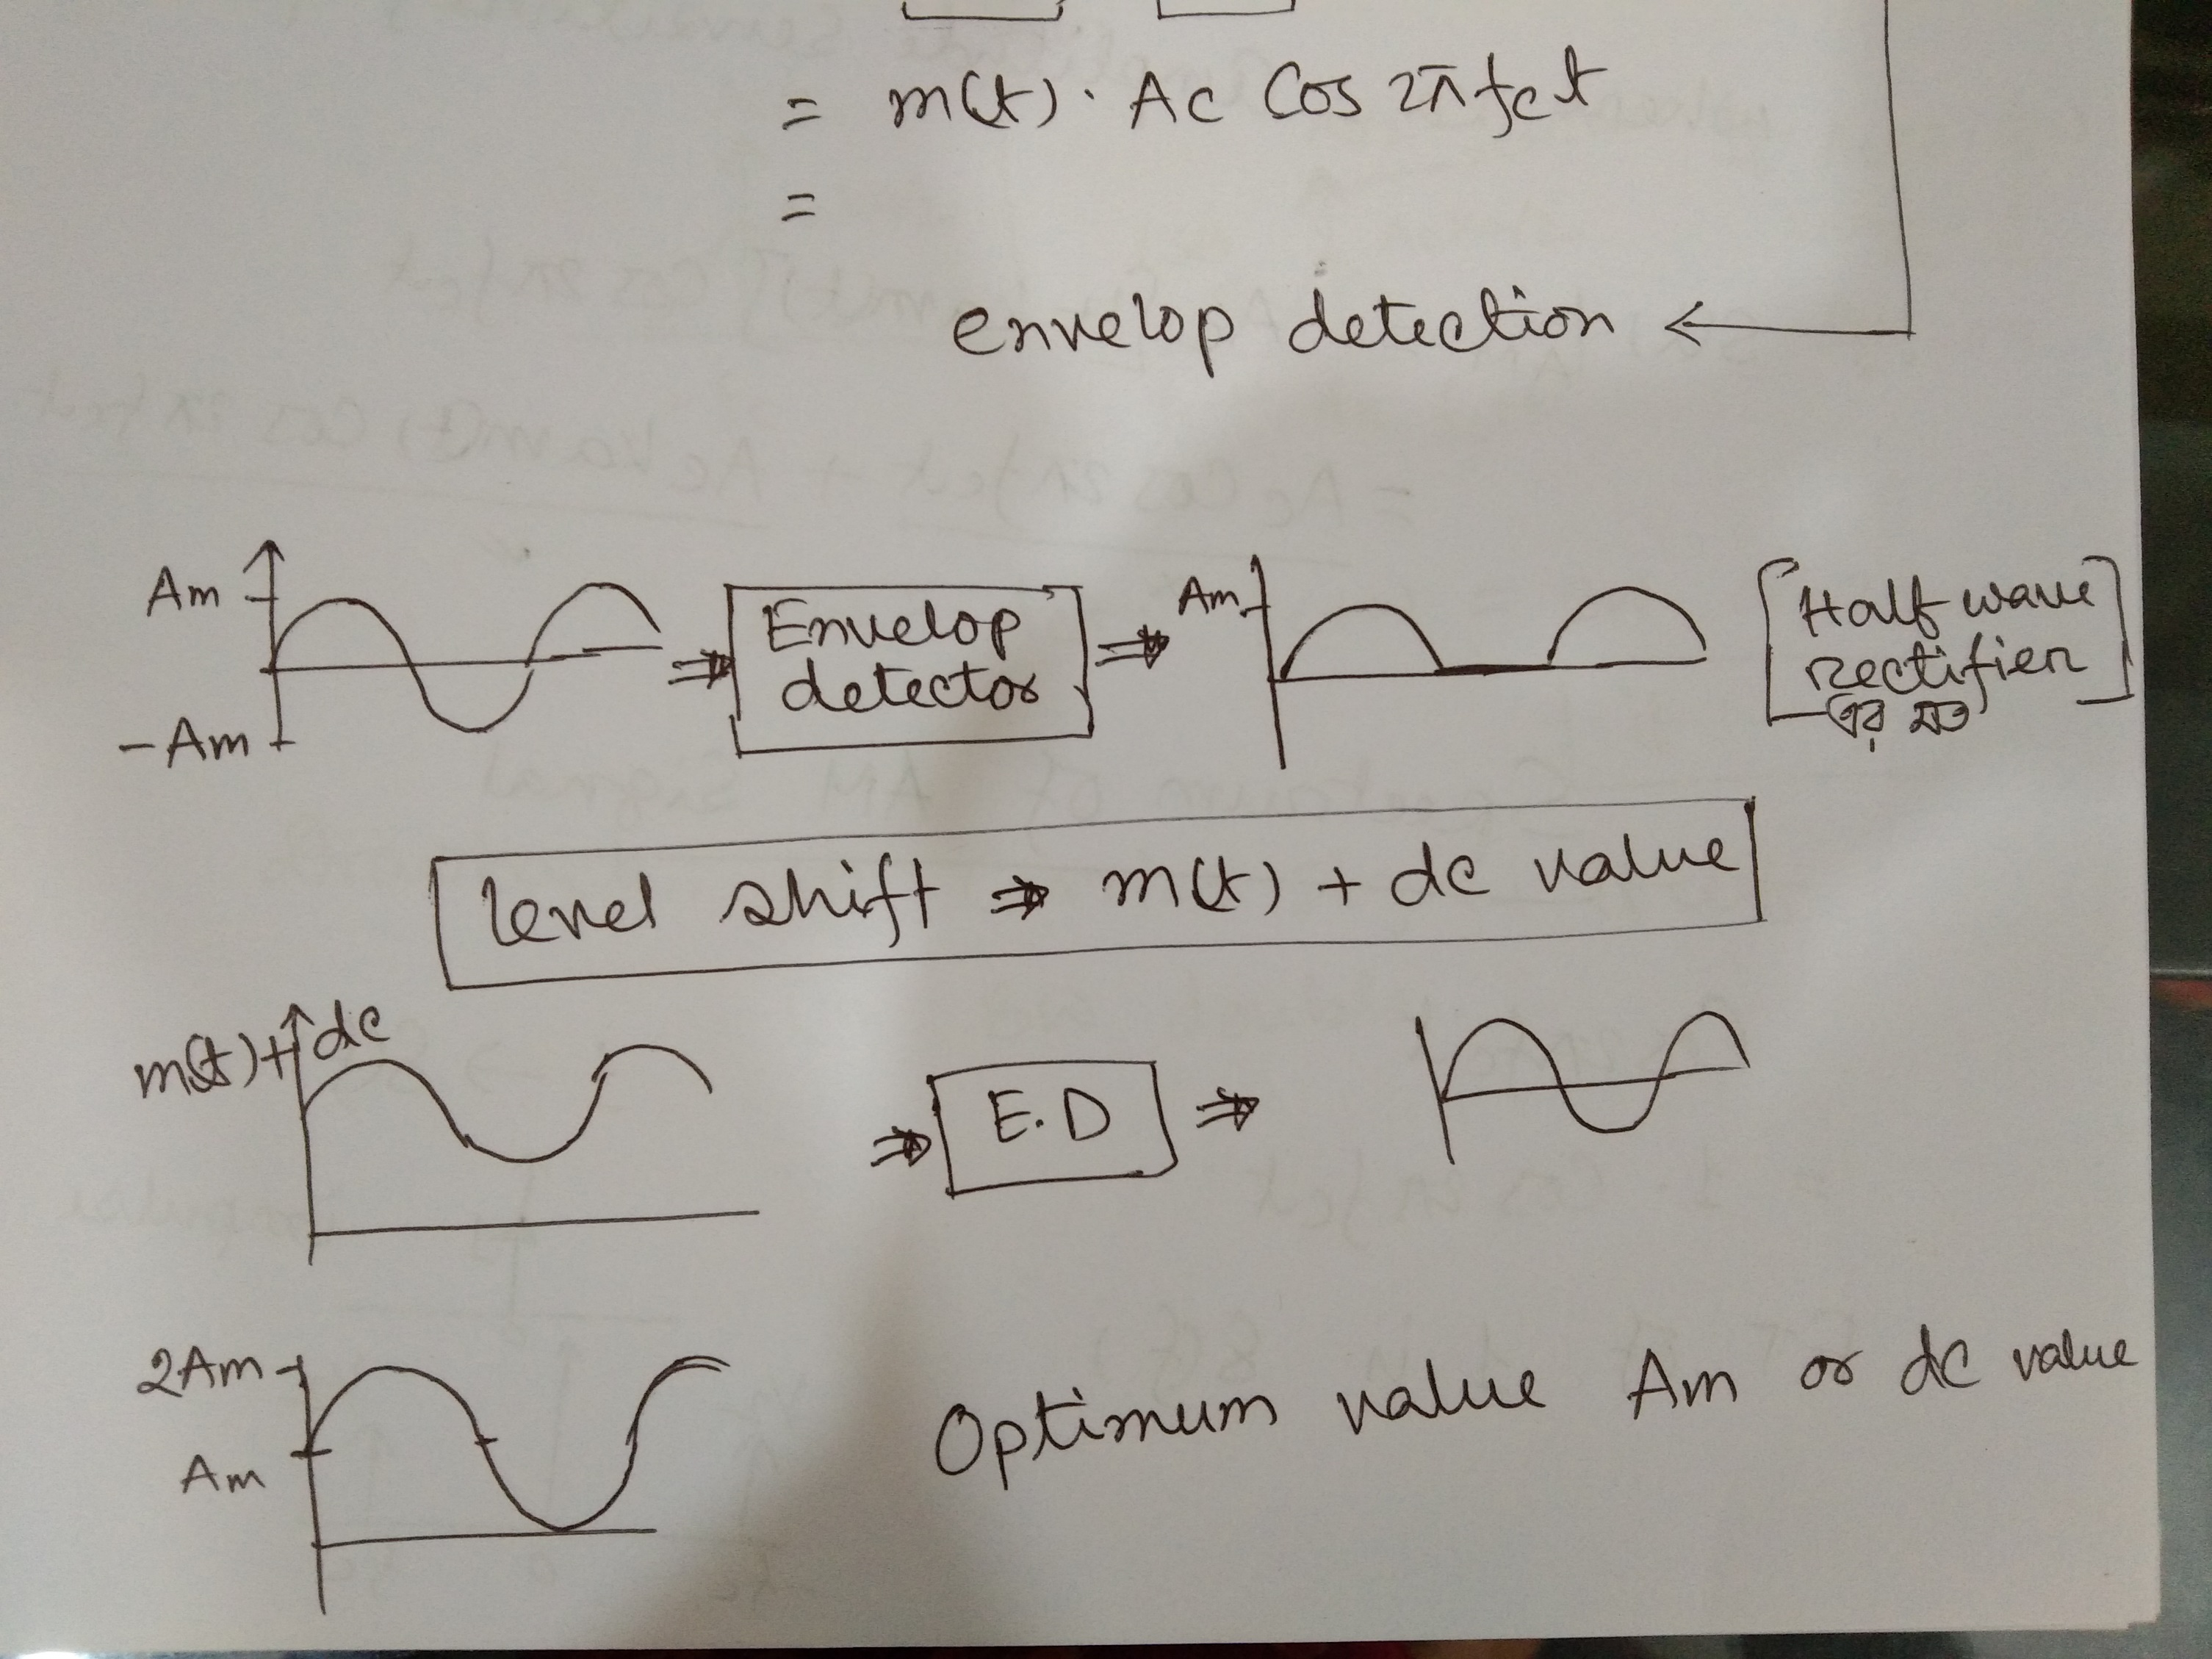 = m(t) · Ac Cos 2πfct
=
envelop detection ←
Am
-Am
⇒ Envelop detector ⇒
Am
[Half wave
rectifier
এর মত]
level shift ⇒ m(t) + dc value
m(t)+dc
⇒ E.D ⇒
2Am
Am
Optimum value Am or dc value